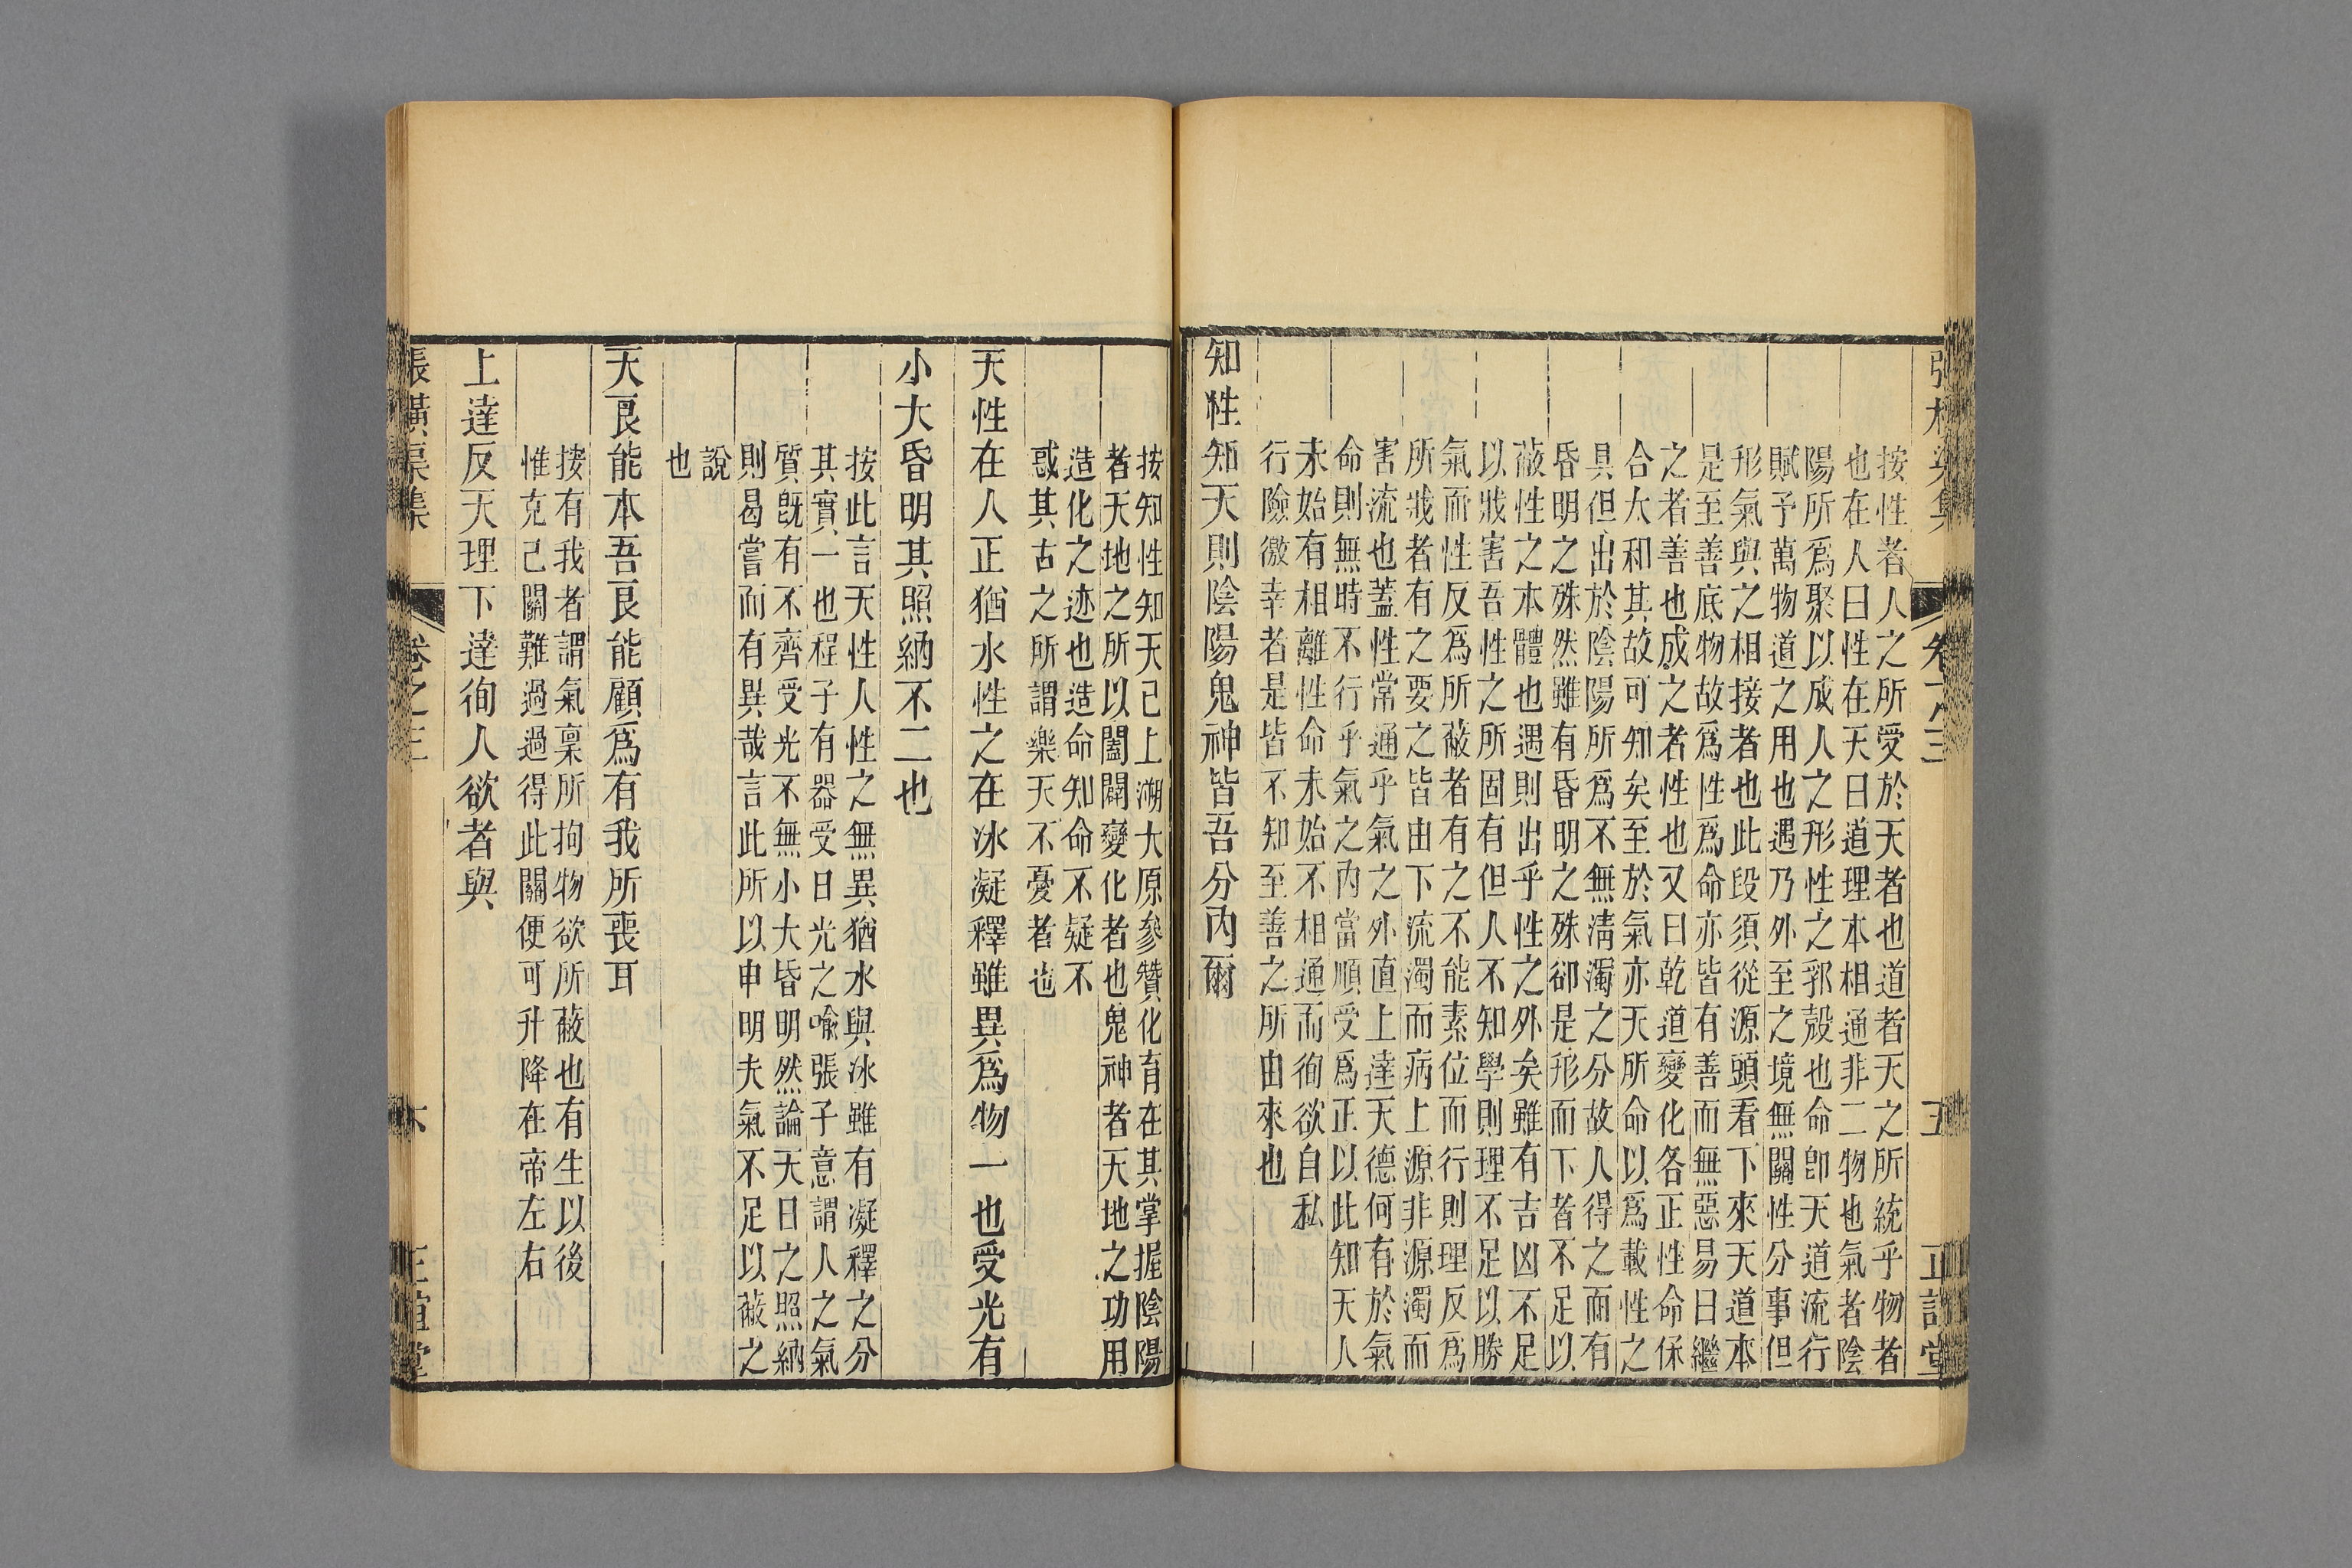 按性者人之所受於天者也道者天之所統乎物者
也在人曰性在天曰道理本相通非二物也氣者陰
陽所爲聚以成人之形性之郛殼也命卽天道流行
賦予萬物道之用也遇乃外至之境無關性分事但
形氣與之相接者也此段須從源頭看下來天道本
是至善底物故爲性爲命亦皆有善而無惡易曰繼
之者善也成之者性也又曰乾道變化各正性命保
合太和其故可知矣至於氣亦天所命以爲載性之
具但出於陰陽所爲不無淸濁之分故人得之而有
昏明之殊然雖有昏明之殊卻是形而下者不足以
蔽性之本體也遇則出乎性之外矣雖有吉凶不足
以戕害吾性之所固有但人不知學則理不足以勝
氣而性反爲所蔽者有之不能素位而行則理反爲
所戕者有之要之皆由下流濁而病上源非源濁而
害流也蓋性常通乎氣之外直上達天德何有於氣
命則無時不行乎氣之內當順受爲正以此知天人
未始有相離性命未始不相通而徇欲自私
行險徼幸者是皆不知至善之所由來也
知性知天則陰陽鬼神皆吾分內爾
按知性知天已上溯大原參贊化育在其掌握陰陽
者天地之所以闔闢變化者也鬼神者天地之功用
造化之迹也造命知命不疑不
惑其古之所謂樂天不憂者也
天性在人正猶水性之在冰凝釋雖異爲物一也受光有
小大昏明其照納不二也
按此言天性人性之無異猶水與冰雖有凝釋之分
其實一也程子有器受日光之喻張子意謂人之氣
質旣有不齊受光不無小大昏明然論天日之照納
則曷嘗而有異哉言此所以申明夫氣不足以蔽之
說
也
天良能本吾良能顧爲有我所喪耳
按有我者謂氣稟所拘物欲所蔽也有生以後
惟克己關難過過得此關便可升降在帝左右
上達反天理下達徇人欲者與
張橫渠集
卷之三
六
正誼堂